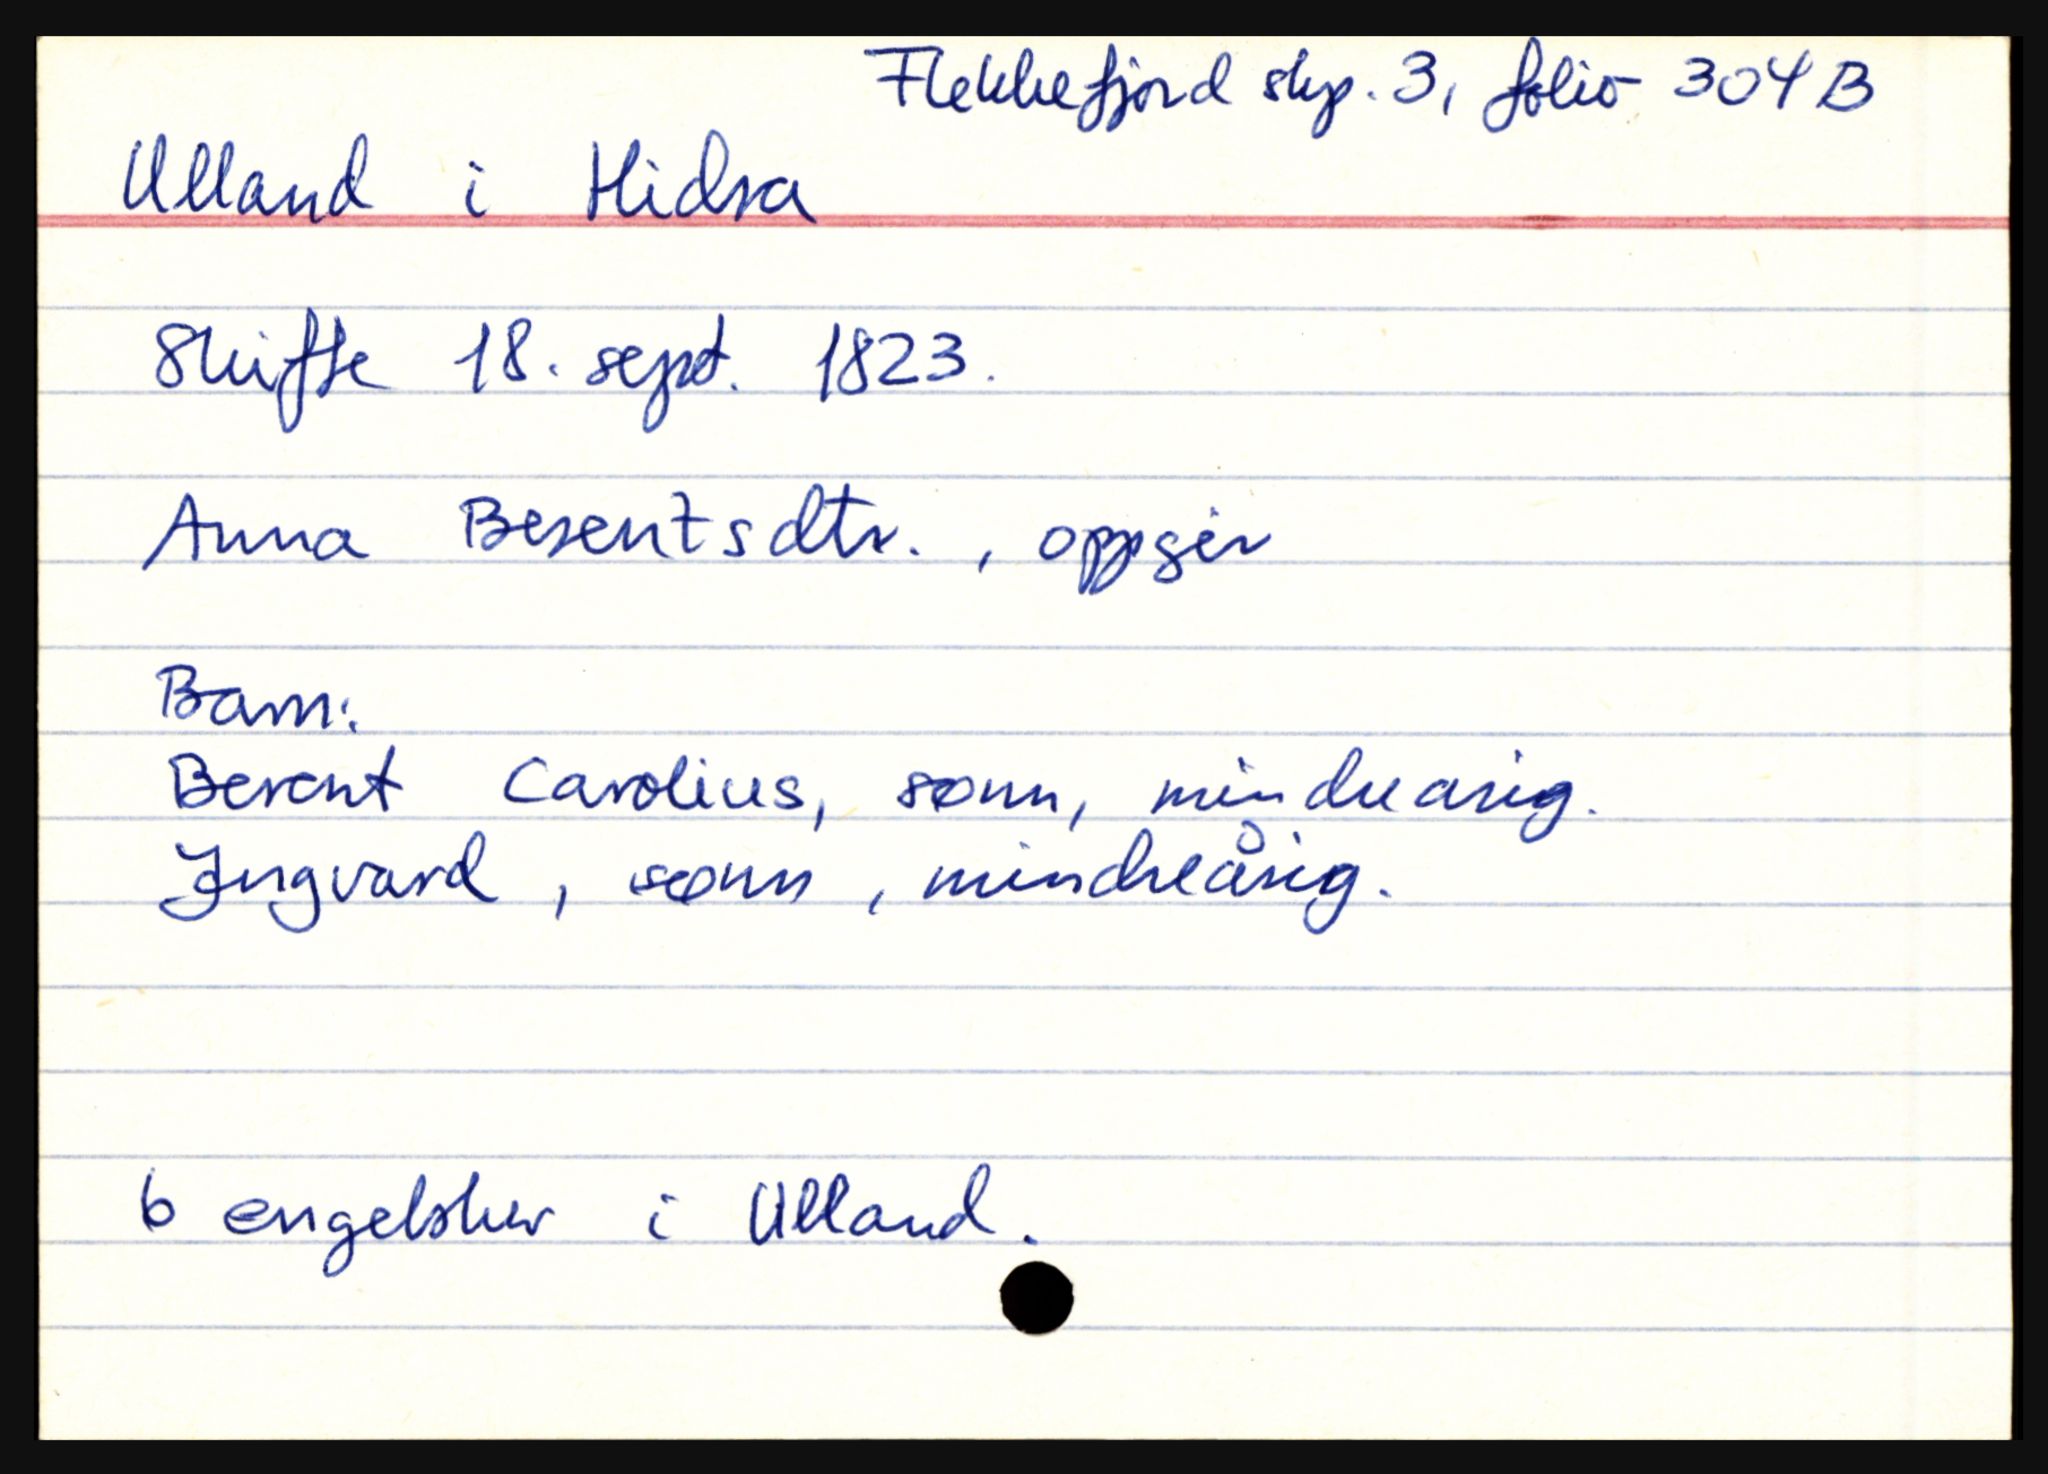 Flekkefjord skp. 3, folio 304 B
Ulland i Hidra
Skifte 18. sept. 1823.
Anna Berentsdtr., oppgir
Barn:
Berent Carolius, sønn, mindreårig.
Ingvard, sønn, mindreårig.
6 engelsker i Ulland.